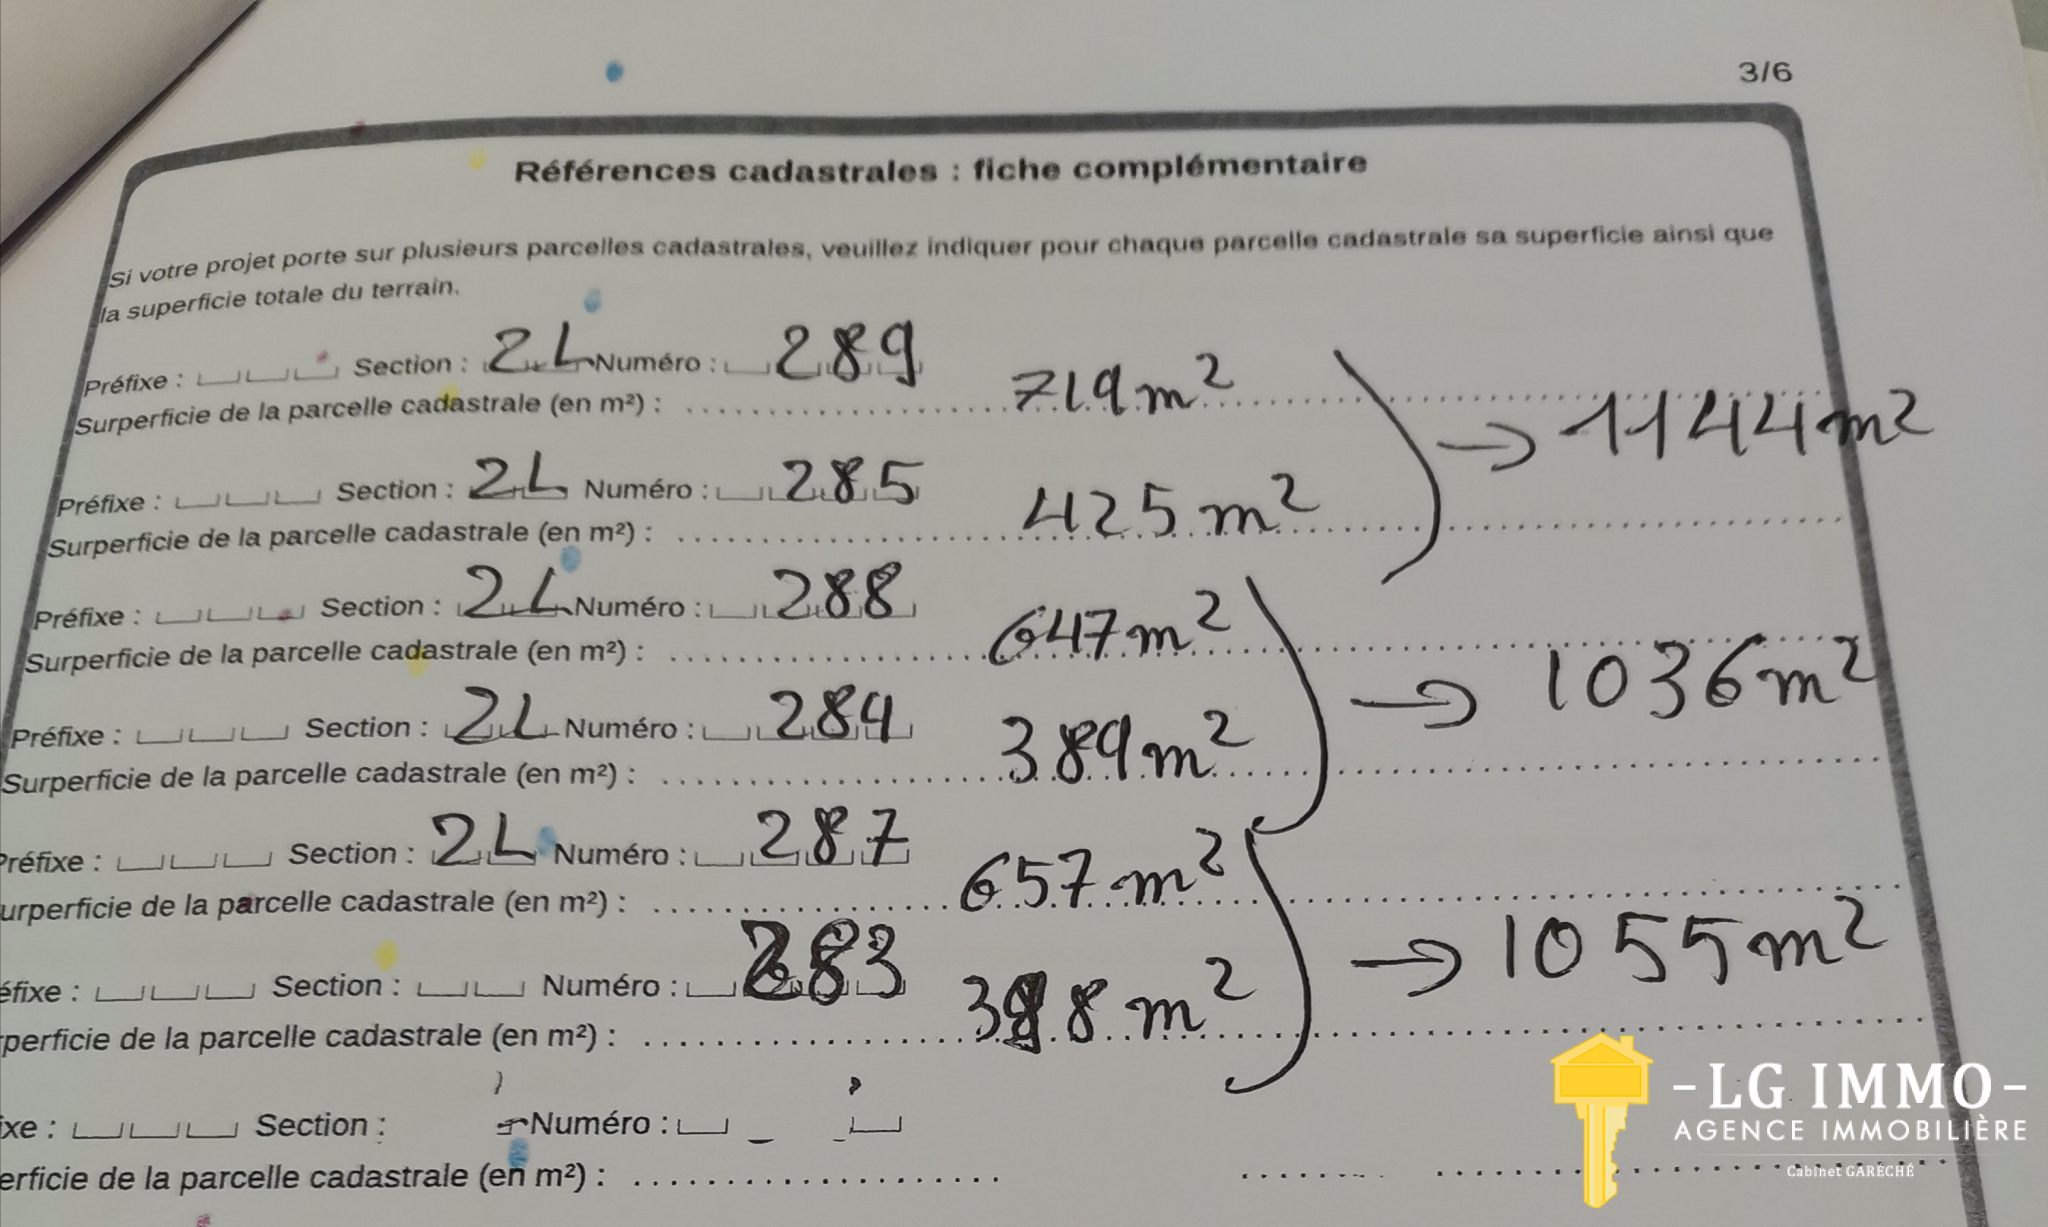 3/6
Références cadastrales : fiche complémentaire
Si votre projet porte sur plusieurs parcelles cadastrales, veuillez indiquer pour chaque parcelle cadastrale sa superficie ainsi que
la superficie totale du terrain.
Préfixe : Section : 2L Numéro : 289
Surperficie de la parcelle cadastrale (en m²) : 719 m²
→ 1144 m²
Préfixe : Section : 2L Numéro : 285
Surperficie de la parcelle cadastrale (en m²) : 425 m²
Préfixe : Section : 2L Numéro : 288
Surperficie de la parcelle cadastrale (en m²) : 647 m²
→ 1036 m²
Préfixe : Section : 2L Numéro : 284
Surperficie de la parcelle cadastrale (en m²) : 389 m²
Préfixe : Section : 2L Numéro : 287
urperficie de la parcelle cadastrale (en m²) : 657 m²
→ 1055 m²
éfixe : Section : Numéro : 283
perficie de la parcelle cadastrale (en m²) : 398 m²
ixe : Section : Numéro :
erficie de la parcelle cadastrale (en m²) :
-LG IMMO-
AGENCE IMMOBILIÈRE
Cabinet GARÉCHÉ